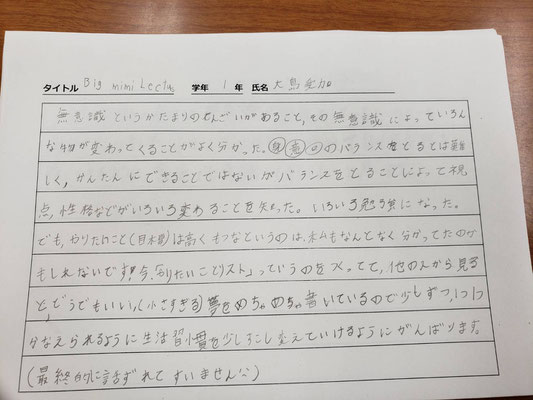 タイトル Big mimi Lectu 学年 1 年 氏名 大島
無意識というかたまりのぜんたいがあること,その無意識によっていろん
な物が変わってくることがよく分かった。身 意 のバランスをとるとは難
しく,かんたんにできることではないがバランスをとることによって視
点,性格などがいろいろ変わることを知れた。いろいろ勉強になった。
でも,やりたいこと(目木票)は高くもつなというのは,私もなんとなく分かってたのか
もしれないです!今,「やりたいことリスト」っていうのをつくってて,他の人から見る
と,どうでもいい,(小さすぎる)夢をめちゃめちゃ書いているので少しずつ,1つ1つ
かなえられるように生活習慣を少しずつ変えていけるようにがんばります。
(最終的に話ずれてすいません)